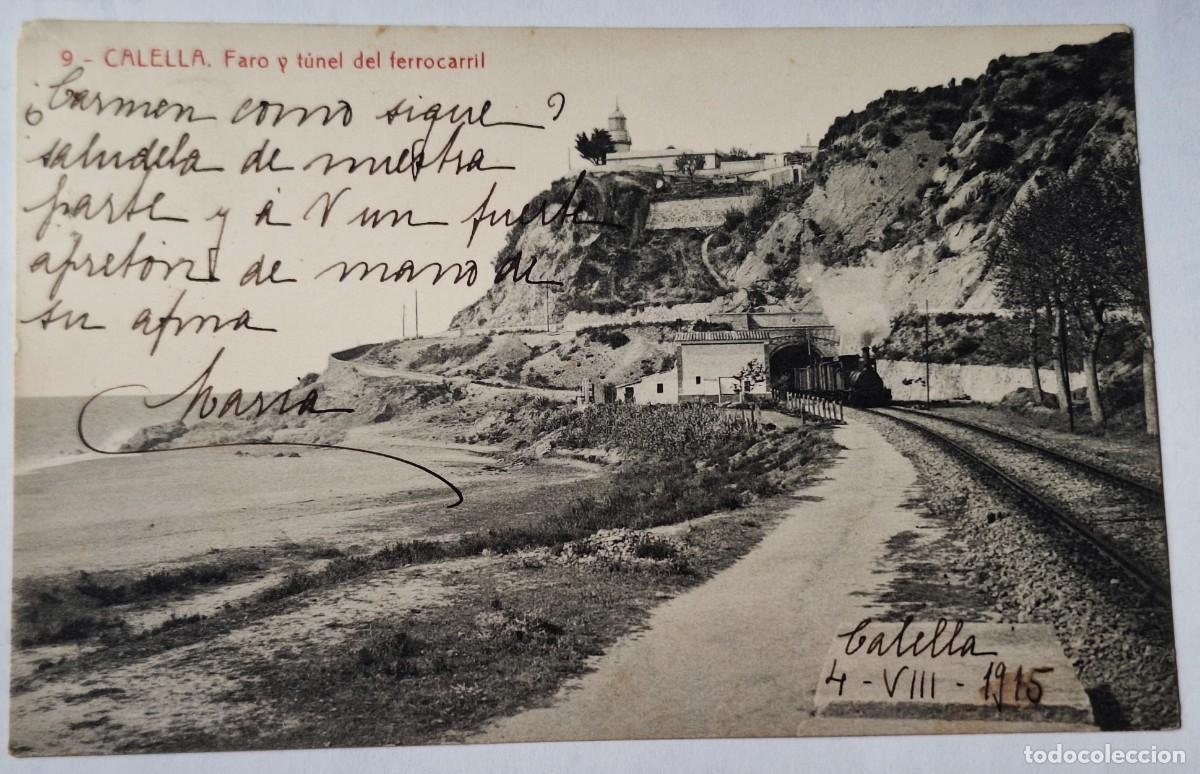 9 - CALELLA. Faro y túnel del ferrocarril
¿Carmen como sigue?
saludela de nuestra
parte y á V un fuerte
apretón de mano de
su afma
Maria
Calella
4 - VIII - 1915
todocoleccion